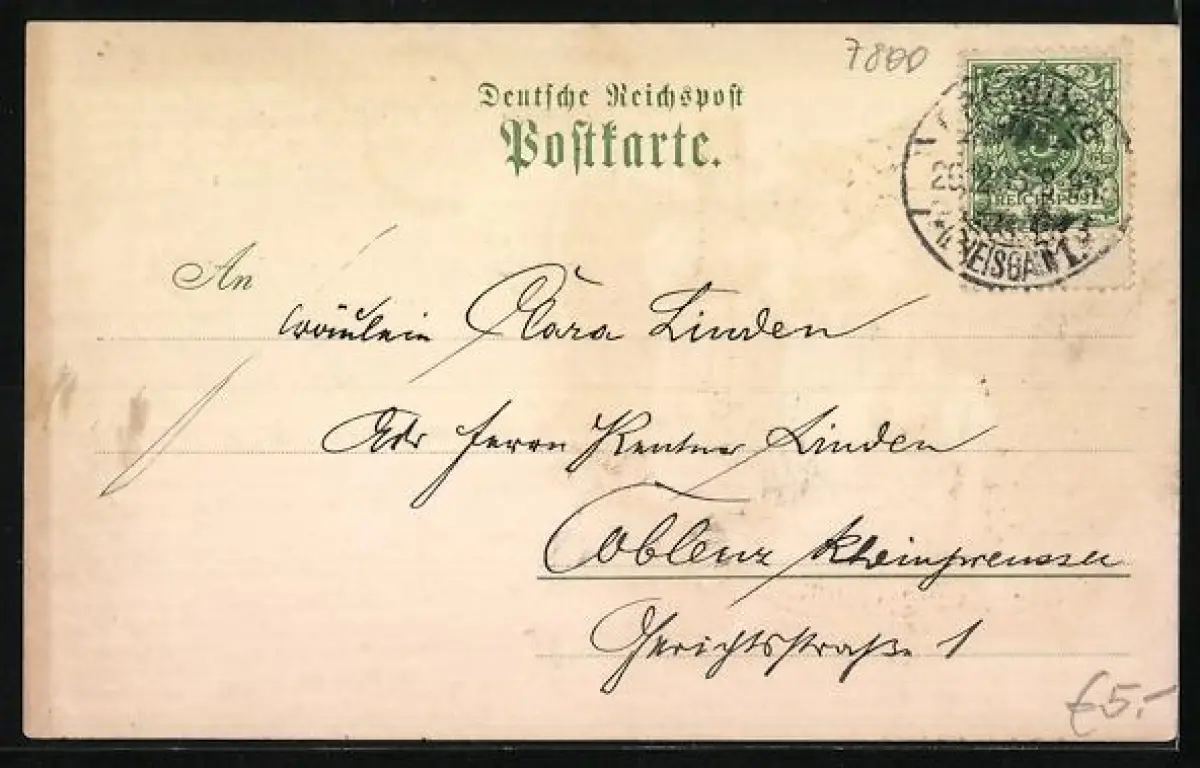 7800
Deutsche Reichspost
Postkarte.
REICHSPOST
An
Fräulein Clara Linden
Adr Herrn Rentner Linden
Coblenz Rheinpreussen
Gerichtsstraße 1
€5.-